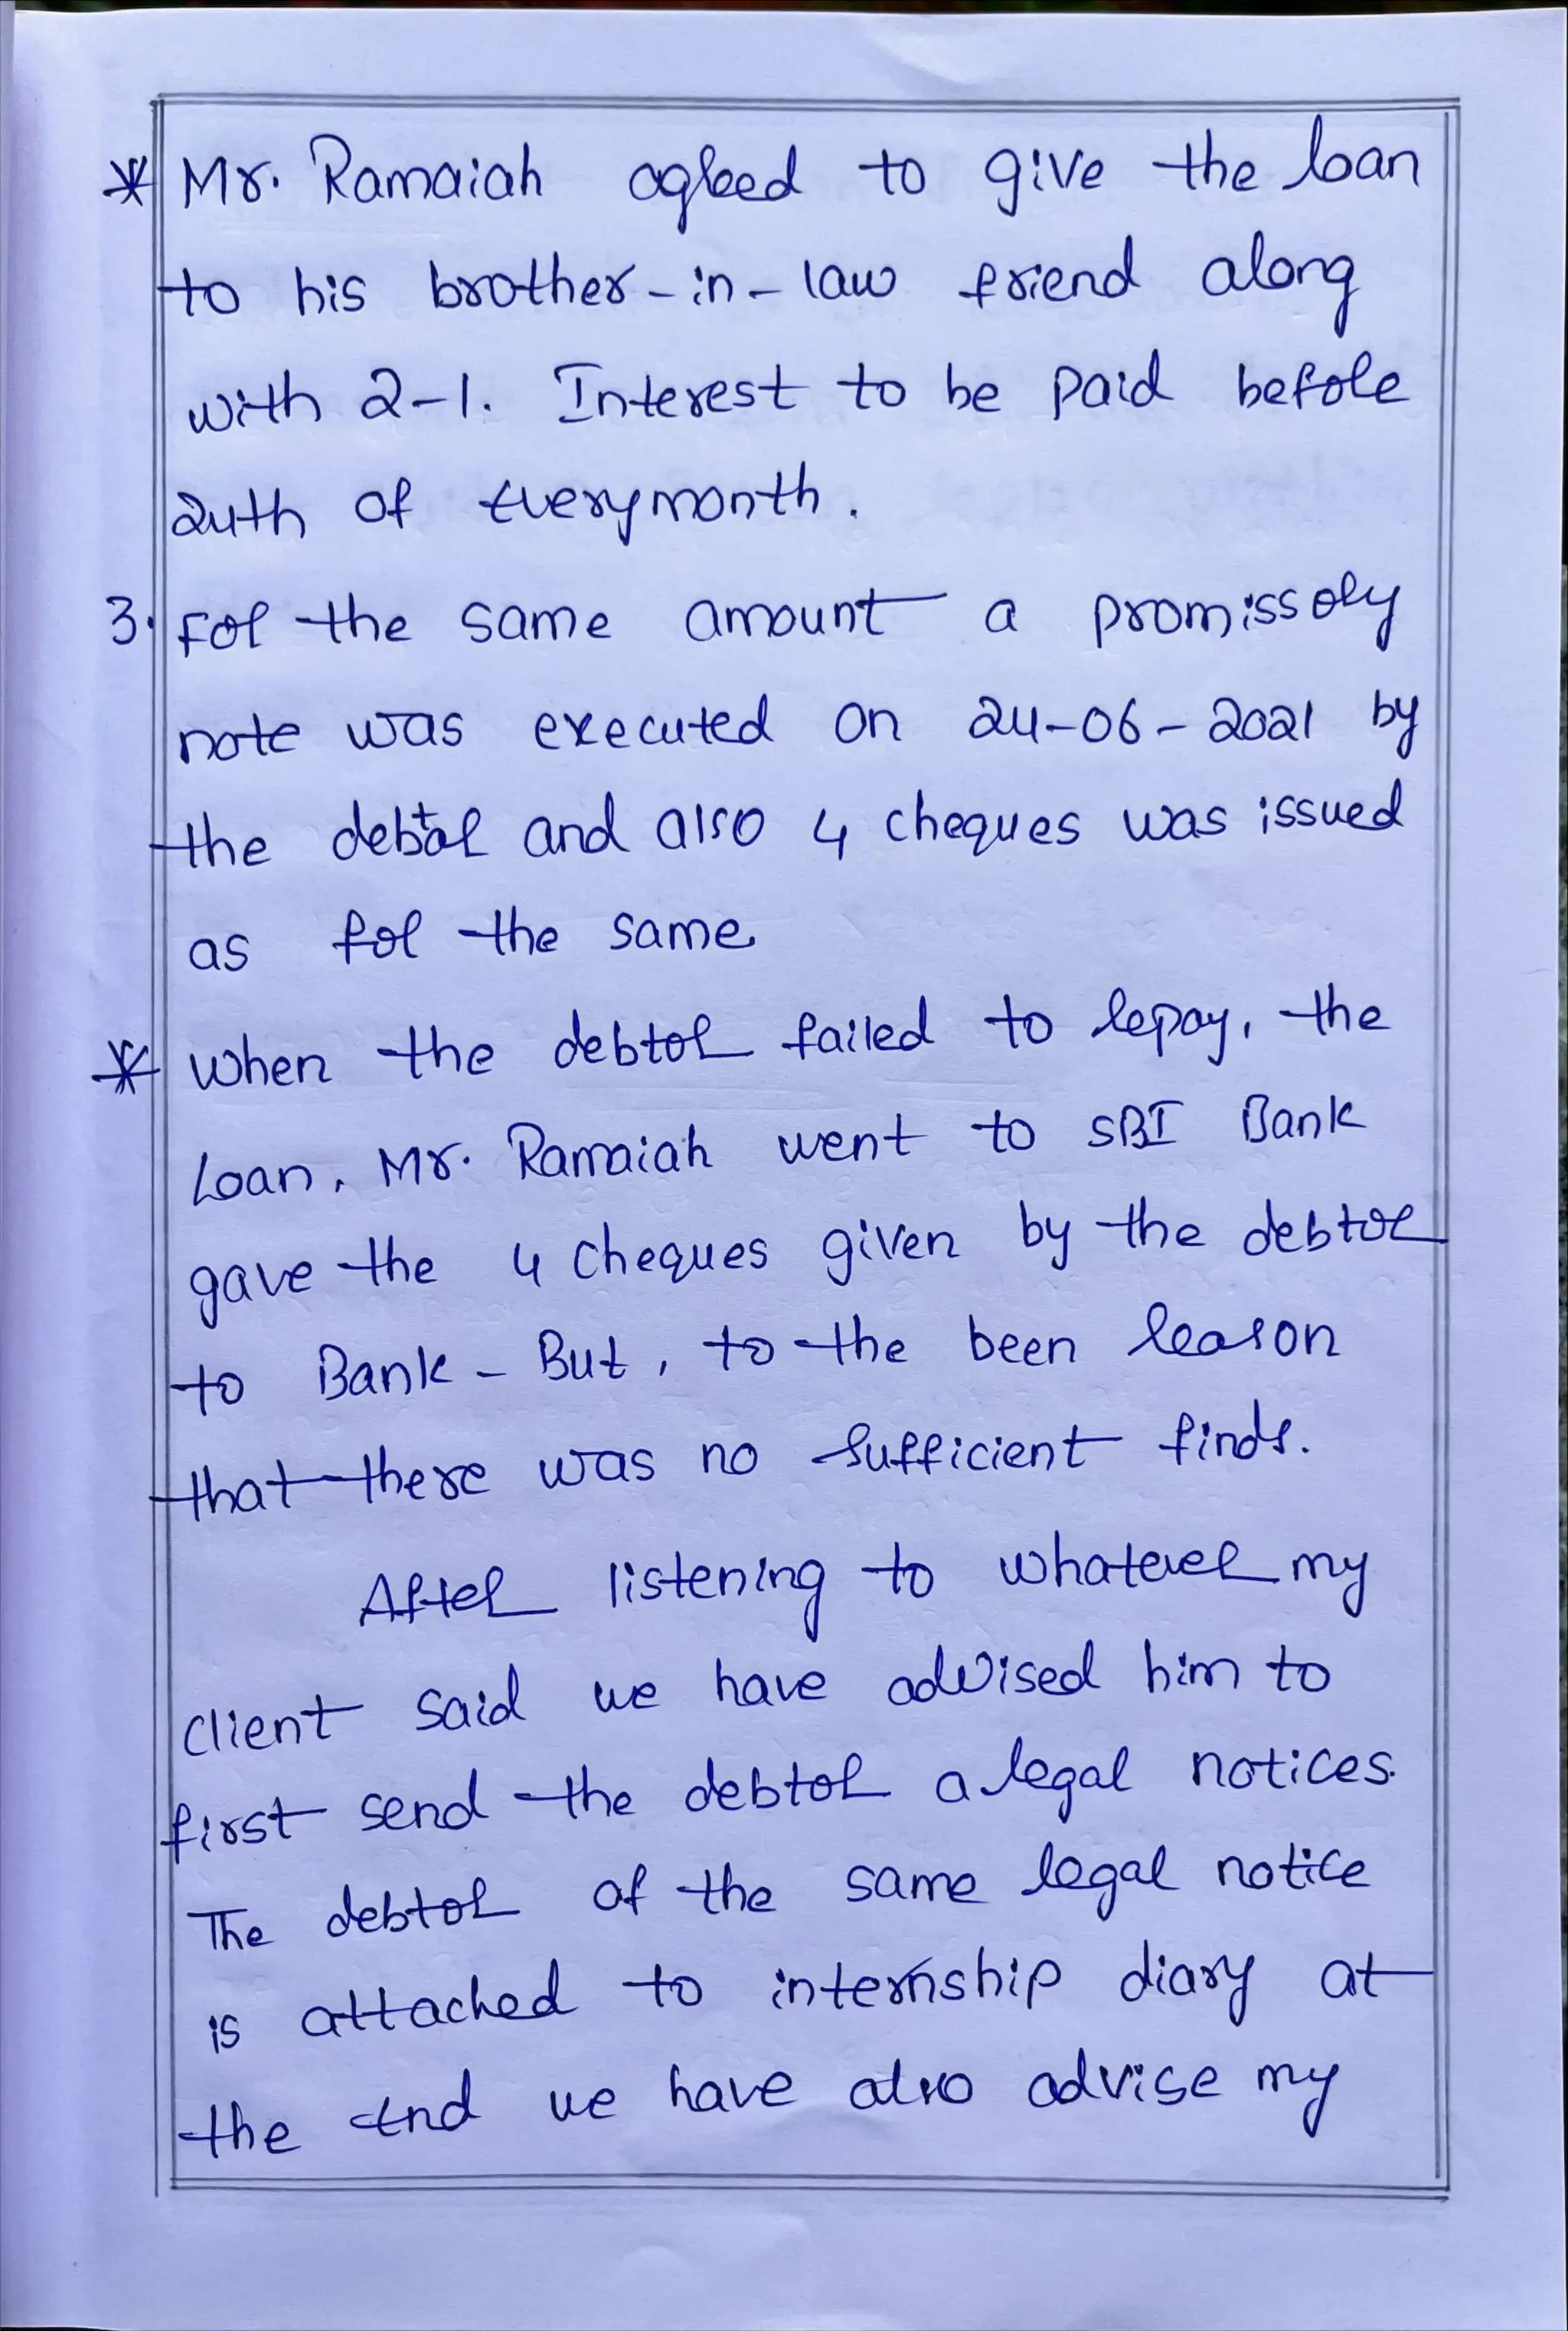 * Mr. Ramaiah agreed to give the loan
to his brother-in-law friend along
with 2-1. Interest to be paid before
24th of Everymonth.
3. For the same amount a promissory
note was executed on 24-06-2021 by
the debtor and also 4 cheques was issued
as for the same
* when the debtor failed to repay, the
Loan, Mr. Ramaiah went to SBI Bank
gave the 4 cheques given by the debtor
to Bank - But, to the been reason
that there was no sufficient finds.
After listening to whatever my
client said we have advised him to
first send the debtor a legal notices.
The debtor of the same legal notice
is attached to internship diary at
the End we have also advise my